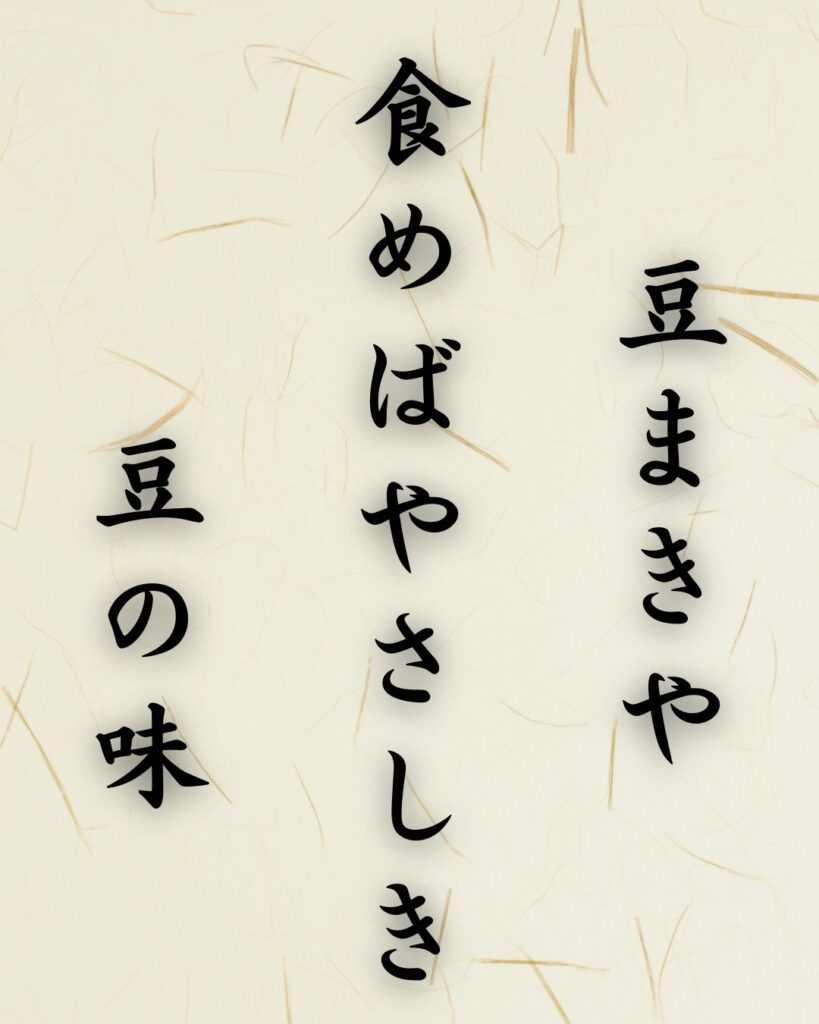 豆まきや
食めばやさしき
豆の味